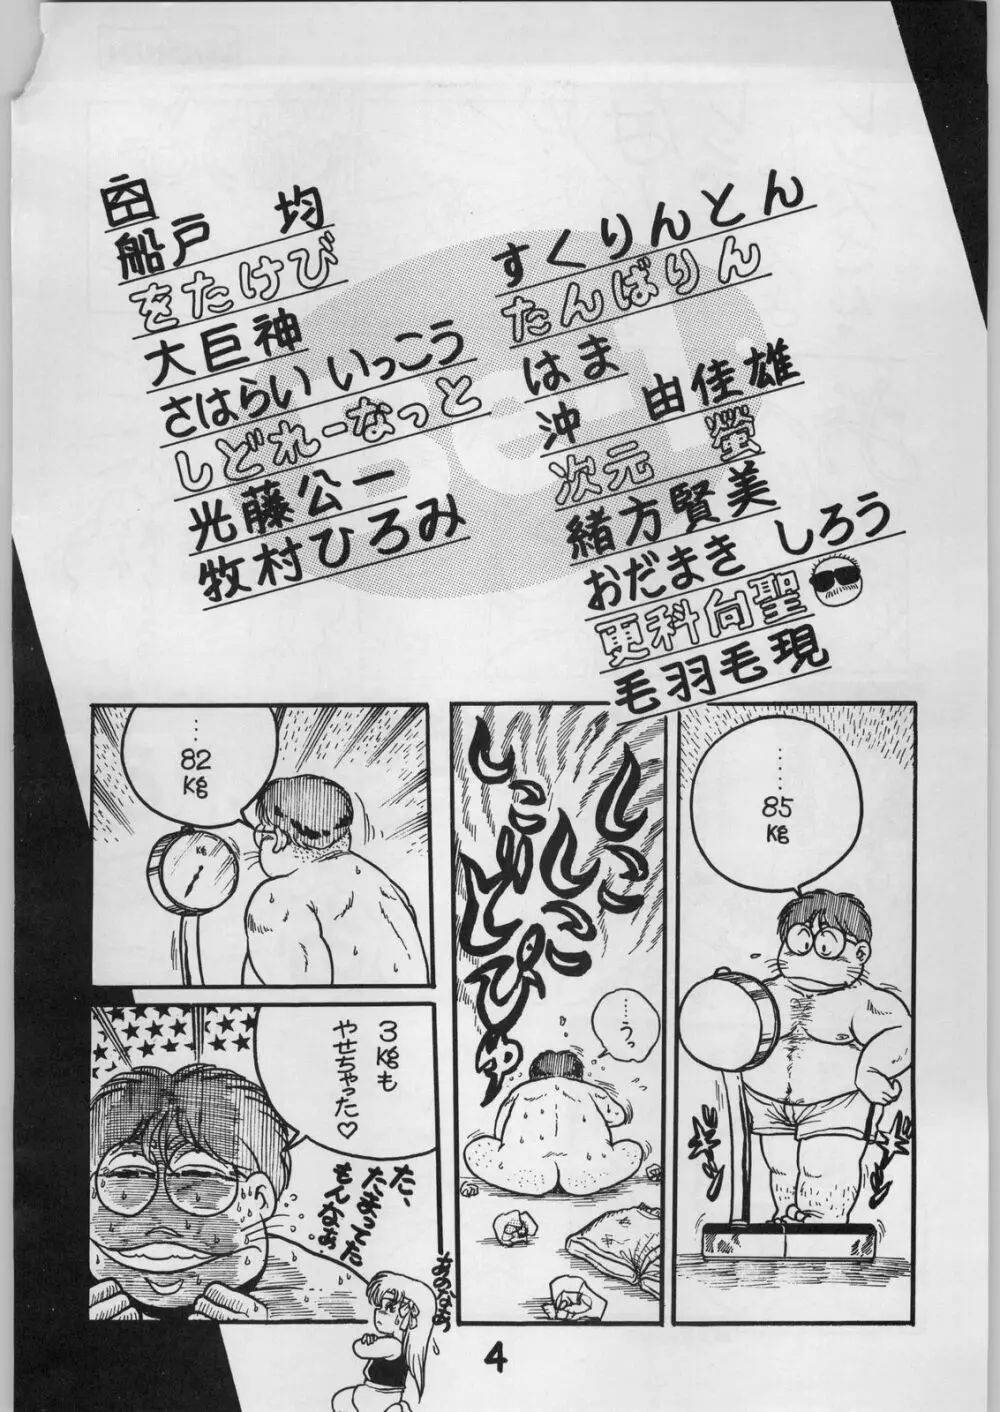 船戸 均
をたけび
大巨神
さはらい いっこう
しどれーなっと
光藤公一
牧村ひろみ
すくりんとん
たんばりん
はま
沖 由佳雄
次元 螢
緒方賢美
おだまき しろう
更科向聖
毛羽毛現
Be-1.
……
85
kg
しこしこ
しこしこ
どぴゅ
……うっ
……
82
kg
kg
3kgも
やせちゃった♡
た、
たまってた
もんなぁ。
あのなぁっ
4